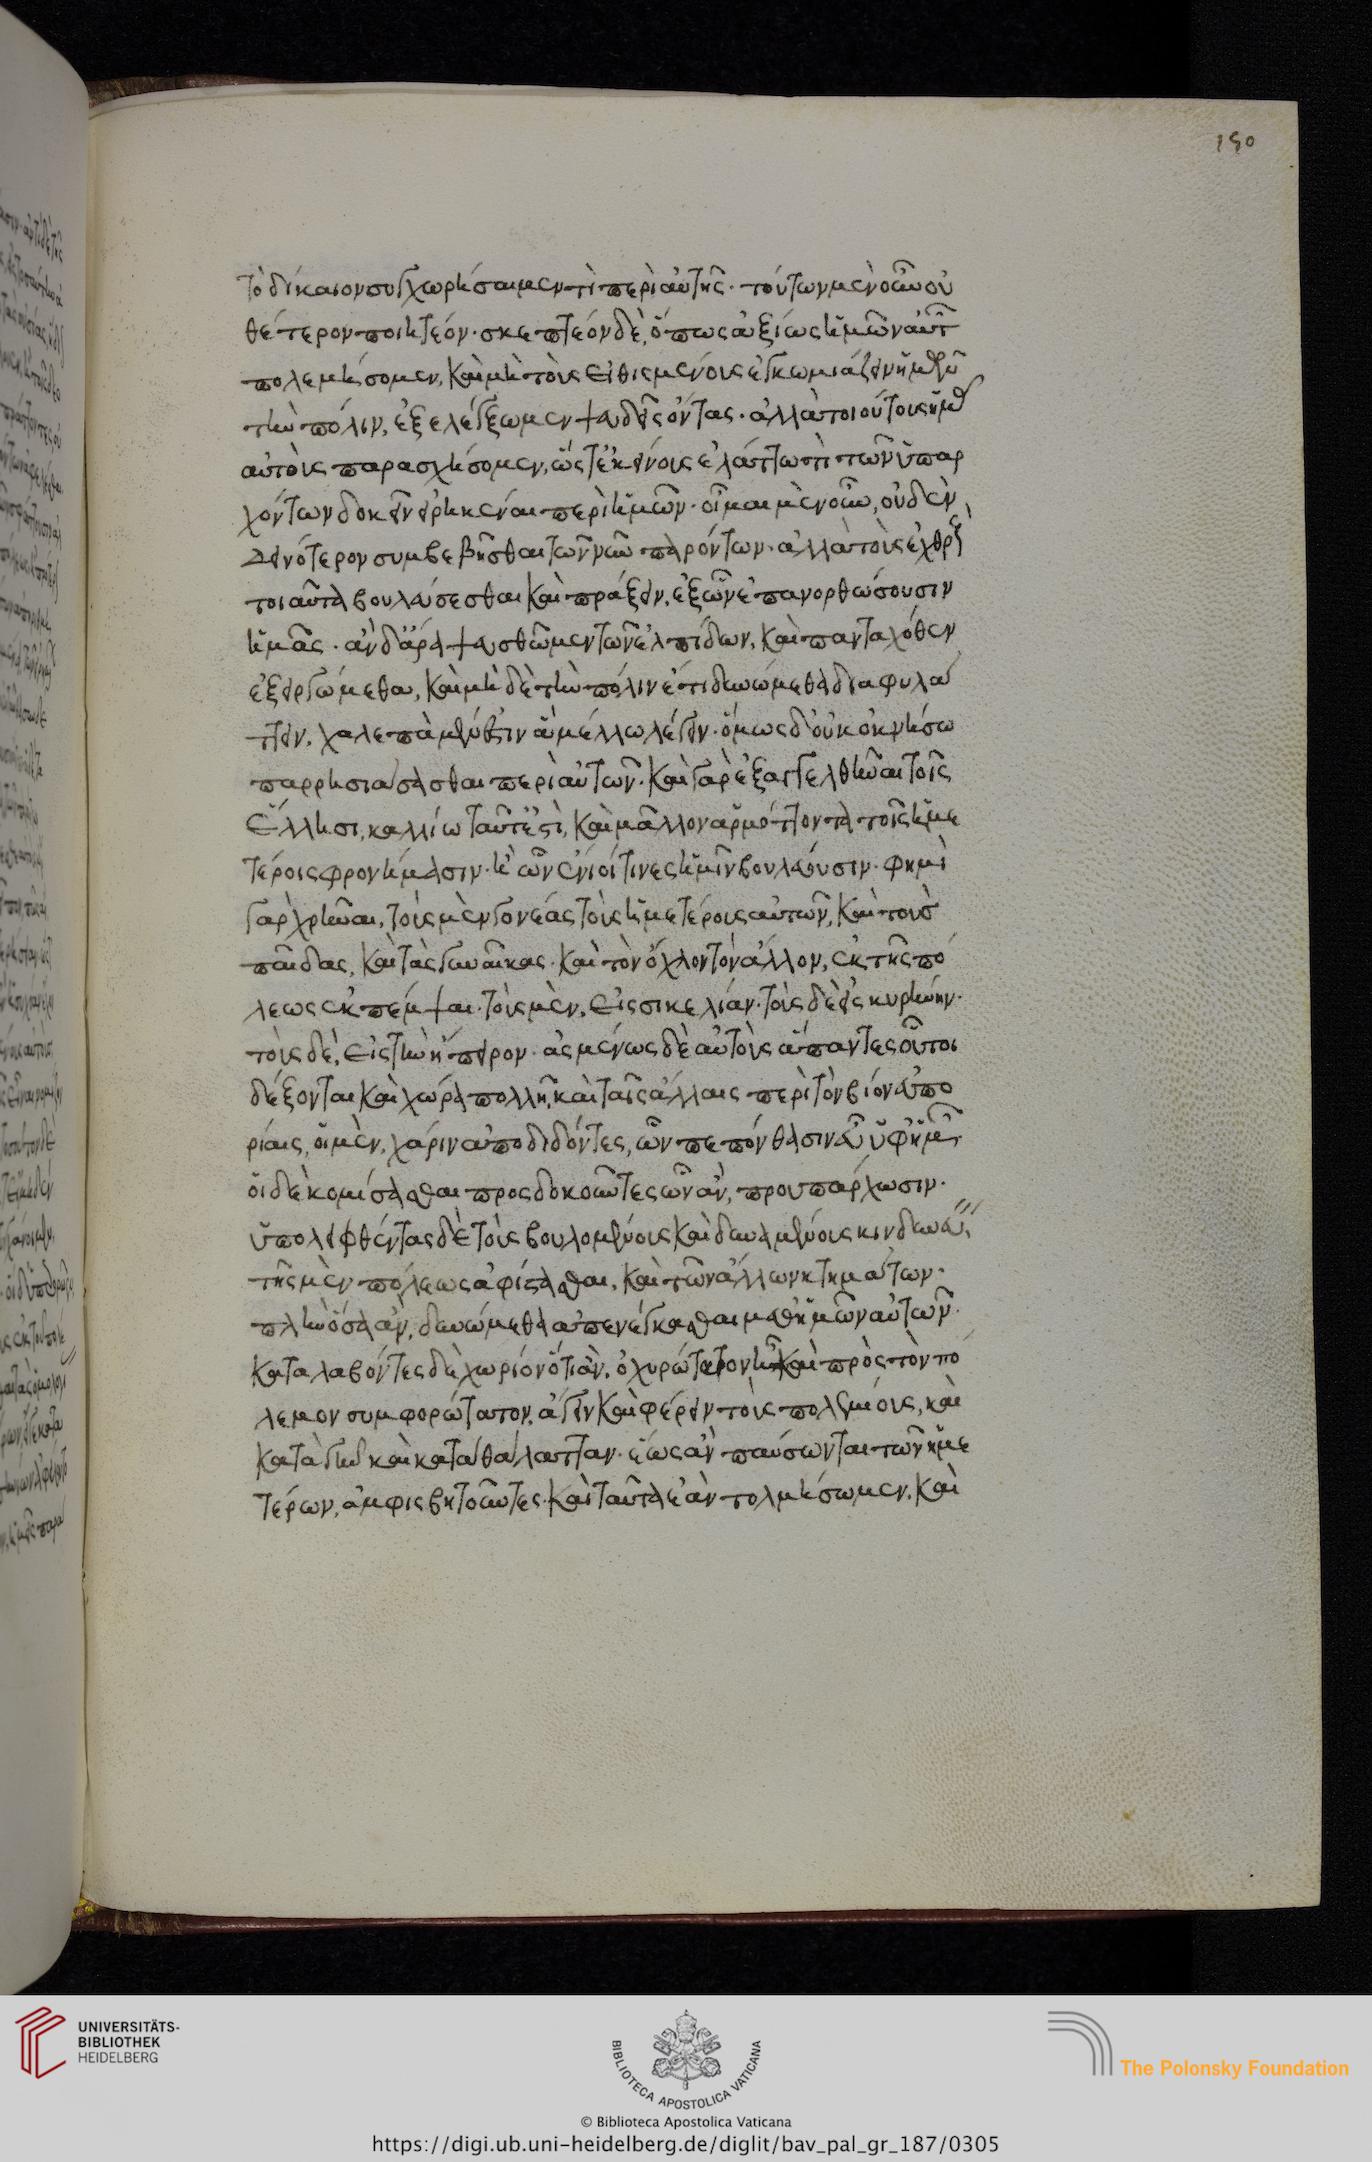 150
τὸ δίκαιον συγχωρήσαιμεν τὶ περὶ αὐτῆς · τούτων μὲν οὖν οὐ
θέτερον ποιητέον · σκεπτέον δὲ, ὅπως ἀξίως ἡμῶν αὐτῶν
πολεμήσομεν, καὶ μὴ τοὺς εἰθισμένους ἐγκωμιάζειν ἡμῶν
τὴν πόλιν, ἐξελέγξωμεν ψευδεῖς ὄντας · ἀλλὰ τοιούτους ἡμᾶς
αὐτοὺς παρασχήσομεν, ὥς τ' ἐκείνοις ἐλάττω τι τῶν ὑπαρ
χόντων δοκεῖν εἰρηκέναι περὶ ἡμῶν · οἶμαι μὲν οὖν, οὐδὲν
δεινότερον συμβεβῆσθαι τῶν νῦν παρόντων · ἀλλὰ τοὺς ἐχθροὺς
τοιαῦτα βουλεύσεσθαι καὶ πράξειν, ἐξ ὧν ἐπανορθώσουσιν
ἡμᾶς · ἂν δ' ἄρα ψευσθῶμεν τῶν ἐλπίδων, καὶ πανταχόθεν
ἐξειργώμεθα, καὶ μὴ δὲ τὴν πόλιν ἔτι δυνώμεθα διαφυλά
ττειν, χαλεπὰ μέν ἐστιν ἃ μέλλω λέγειν · ὅμως δ' οὐκ ὀκνήσω
παρρησιάσασθαι περὶ αὐτῶν · καὶ γὰρ ἐξαγγελθῆναι τοῖς
Ἕλλησι, καλλίω ταῦτ' ἐστὶ, καὶ μᾶλλον ἁρμόττοντα τοῖς ἡμε
τέροις φρονήμασιν · ἢ ὧν ἔνιοί τινες ἡμῖν βουλεύουσιν · φημὶ
γὰρ χρῆναι, τοὺς μὲν γονέας τοὺς ἡμετέρους αὐτῶν, καὶ τοὺς
παῖδας, καὶ τὰς γυναῖκας · καὶ τὸν ὄχλον τὸν ἄλλον, ἐκ τῆς πό
λεως ἐκπέμψαι · τοὺς μὲν, εἰς σικελίαν · τοὺς δὲ εἰς κυρήνην ·
τοὺς δὲ, εἰς τὴν ἤπειρον · ἀσμένως δὲ αὐτοὺς ἅπαντες οὗτοι
δέξονται καὶ χώρα πολλῆ, καὶ ταῖς ἄλλαις περὶ τὸν βίον εὐπο
ρίαις, οἱ μὲν, χάριν ἀποδιδόντες, ὧν πεπόνθασιν εὖ ὑφ' ἡμῶν ·
οἱ δὲ κομίσασθαι προσδοκοῦντες ὧν ἂν, προυπάρχωσιν ·
ὑπολειφθέντας δὲ τοὺς βουλομένους καὶ δυναμένους κινδυνεύειν,
τῆς μὲν πόλεως ἀφίστασθαι, καὶ τῶν ἄλλων κτημάτων ·
πλὴν ὅσα ἂν, δυνώμεθα ἀπενέγκασθαι μεθ' ἡμῶν αὐτῶν ·
καταλαβόντες δὲ χωρίον ὅτι ἂν, ὀχυρώτατον ἦ καὶ πρὸς τὸν πό
λεμον συμφορώτατον, ἄγειν καὶ φέρειν τοὺς πολεμίους, καὶ
κατὰ γῆν καὶ κατὰ θάλατταν · ἕως ἂν παύσωνται τῶν ἡμε
τέρων, ἀμφισβητοῦντες · καὶ ταῦτα ἐὰν τολμήσωμεν, καὶ
UNIVERSITÄTS-
BIBLIOTHEK
HEIDELBERG
BIBLIOTECA APOSTOLICA VATICANA
The Polonsky Foundation
© Biblioteca Apostolica Vaticana
https://digi.ub.uni-heidelberg.de/diglit/bav_pal_gr_187/0305